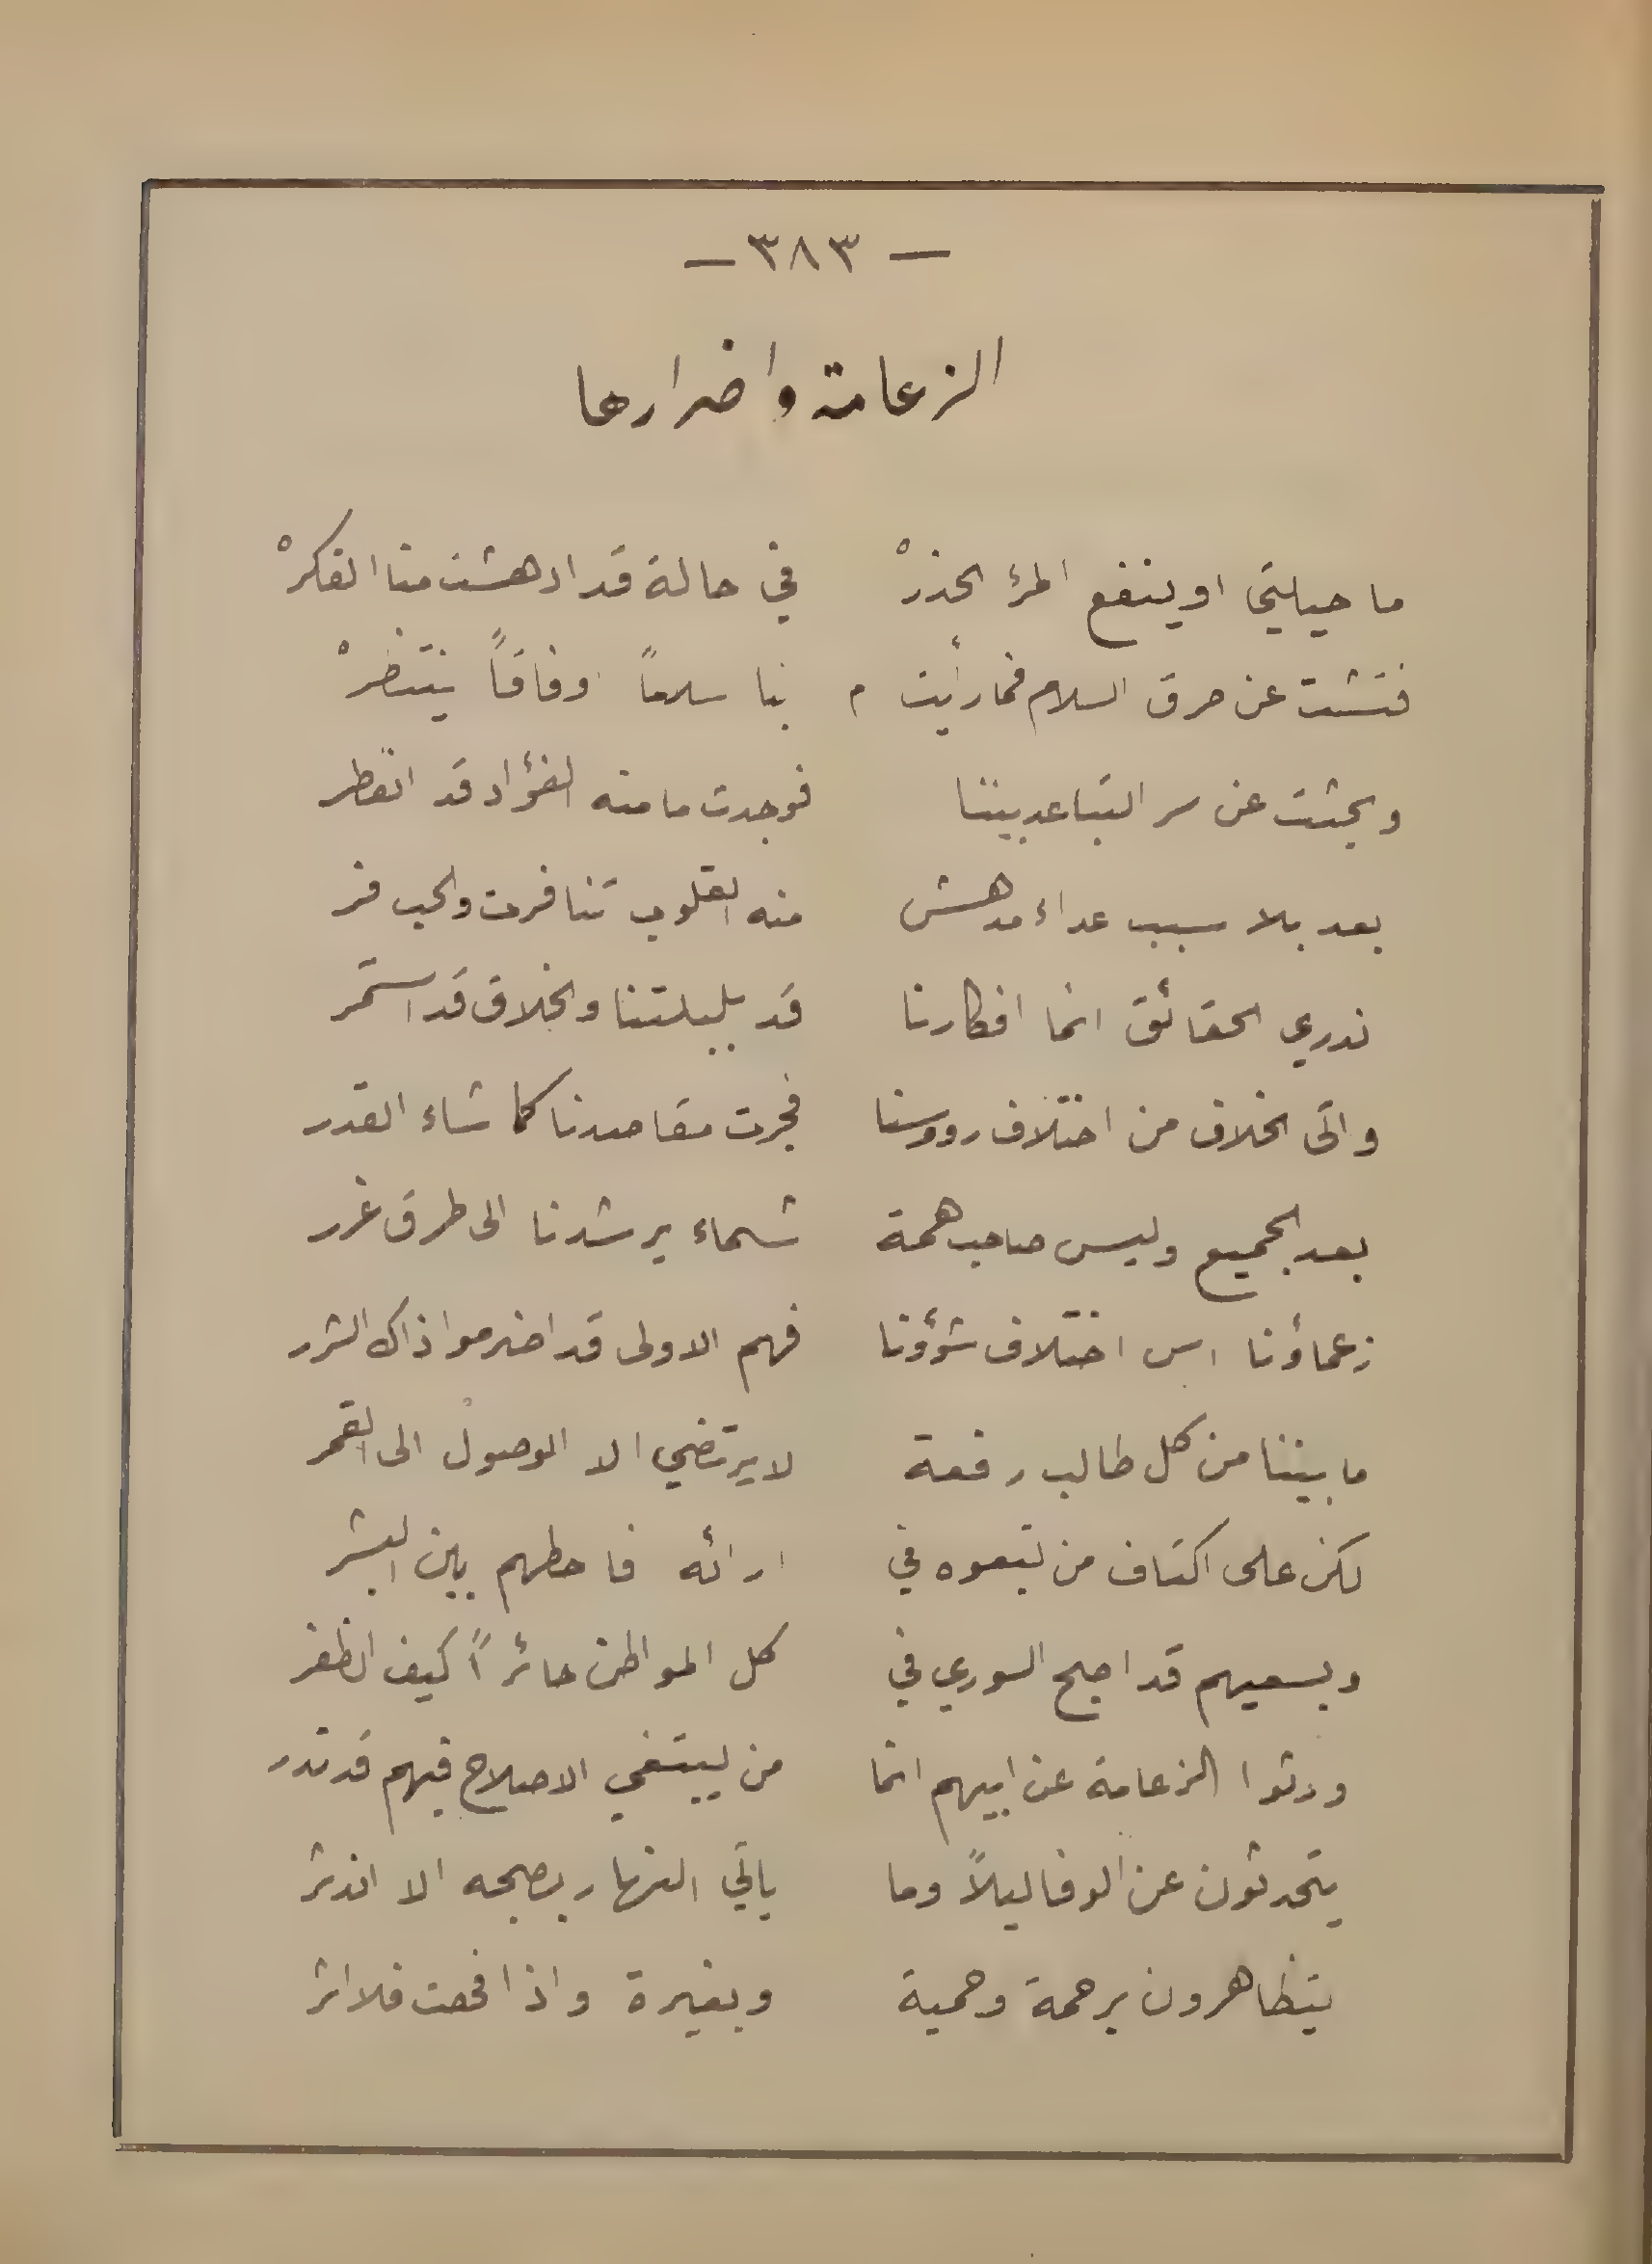 — ٣٨٣ —
الزعامة واضرارها
ما حيلتي اوينفع المرؤ الحذرْ في حالة قد ادهشت منا الفكرْ
فتشت عن طرق السلام فما رأيت م بنا سلاماً او وفاقاً ينتظرْ
وبحثت عن سر التباعد بيننا فوجدت ما منه الفؤاد قد انفطر
بعد بلا سبب عداء مدهش منه القلوب تنافرت والحب فر
ندري الحقائق انما افكارنا قد بلبلتنا والخلاف قد استمر
واتى الخلاف من اختلاف رووسنا فجرت مقاصدنا كما شاء القدر
بعد الجميع وليس صاحب همة شماء يرشدنا الى طرق غرر
زعماؤنا اس اختلاف شؤؤنا فهم الاولى قد اضرموا ذاك الشرر
ما بيننا من كل طالب رفعة لا يرتضي الا الوصول الى القمر
لكن على اكتاف من تبعوه في ارائه فاحطهم بين البشر
وبسعيهم قد اصبح السوري في كل المواطن حائراً كيف الظفر
ورثوا الزعامة عن ابيهم انما من يبتغي الاصلاح فيهم قد ندر
يتحدثون عن الوفا ليلاً وما ياتي النهار بصبحه الا اندثر
يتظاهرون برحمة وحمية وبغيرة واذا فحصت فلا اثر